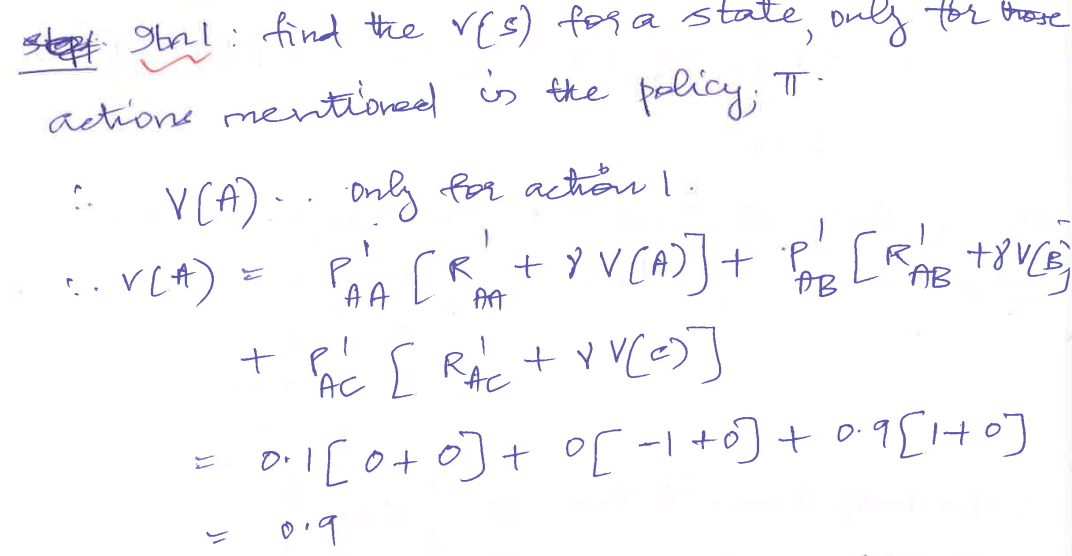 Itn 1 : find the V(s) for a state, only for those
actions mentioned in the policy, π.
∴ V(A) .. only for action 1.
∴ V(A) = P¹_AA [R¹_AA + γ V(A)] + P¹_AB [R¹_AB + γ V(B)]
+ P¹_AC [R¹_AC + γ V(C)]
= 0.1[0+0] + 0[-1+0] + 0.9[1+0]
= 0.9